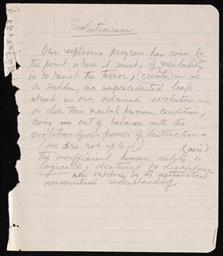 Evolutionism
Our explosive progress has come to
the point where it must, if mentality
is to resist the terror, (create) in us
a sudden, an unprecedented leap
ahead in our ordained evolution —
or else this mental human condition,
being in out of balance with the
evolution of our power of destruction —
(we dare not use it)
the insufficient human entity is
logically destined to disappear
now
nonspiritual understanding